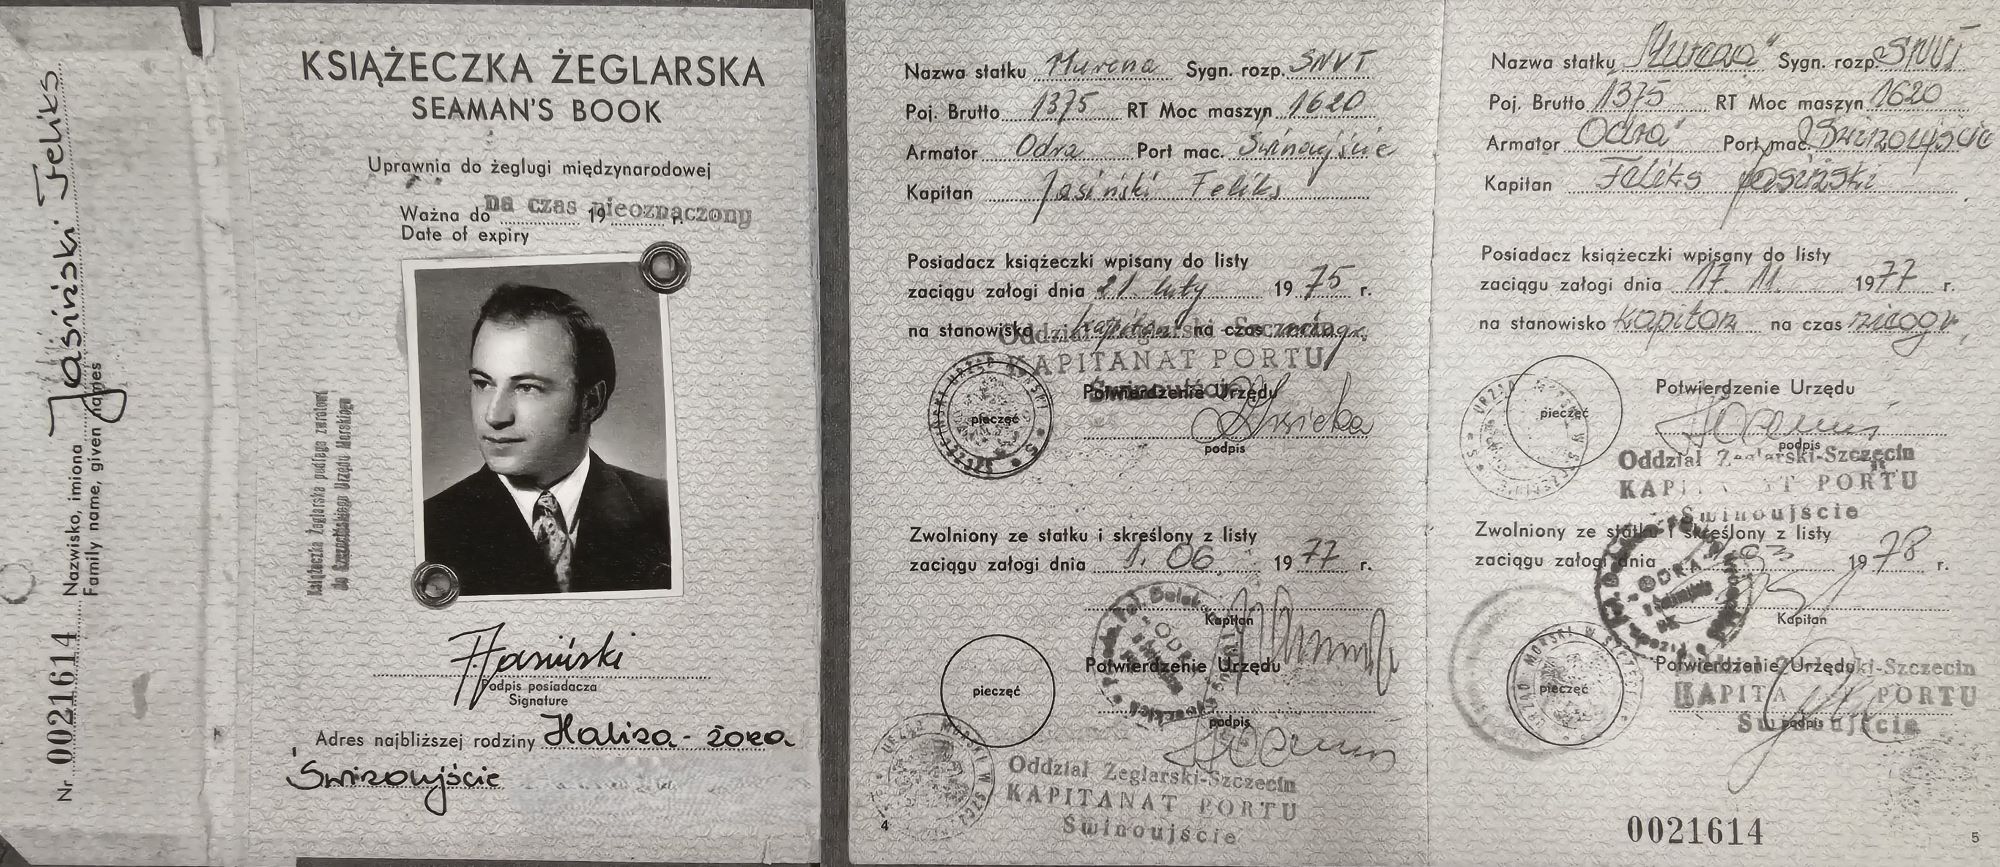 Nr 0021614 Nazwisko, imiona Jasiński Feliks
Family name, given names
KSIĄŻECZKA ŻEGLARSKA
SEAMAN'S BOOK
Uprawnia do żeglugi międzynarodowej
Ważna do na czas 19 nieoznaczony r.
Date of expiry
Książeczka Żeglarska podlega zwrotowi
do Szczecińskiego Urzędu Morskiego
FJasiński
Podpis posiadacza
Signature
Adres najbliższej rodziny Halina - żona
Świnoujście
Nazwa statku Murena Sygn. rozp. SNVT
Poj. Brutto 1375 RT Moc maszyn 1620
Armator Odra Port mac. Świnoujście
Kapitan Jasiński Feliks
Posiadacz książeczki wpisany do listy
zaciągu załogi dnia 21 luty 1975 r.
na stanowisko kapitan na czas
Oddział Żeglarski-Szczecin
KAPITANAT PORTU
Świnoujście
pieczęć
Potwierdzenie Urzędu
podpis
Zwolniony ze statku i skreślony z listy
zaciągu załogi dnia 1. 06. 1977 r.
Kapitan
Potwierdzenie Urzędu
pieczęć
podpis
Oddział Żeglarski-Szczecin
KAPITANAT PORTU
Świnoujście
4
Nazwa statku „Murena" Sygn. rozp. SNVT
Poj. Brutto 1375 RT Moc maszyn 1620
Armator Odra" Port mac. Świnoujście
Kapitan Feliks Jasiński
Posiadacz książeczki wpisany do listy
zaciągu załogi dnia 17. 11. 1977 r.
na stanowisko kapitan na czas nieogr.
Potwierdzenie Urzędu
pieczęć
podpis
Oddział Żeglarski-Szczecin
KAPITANAT PORTU
Świnoujście
Zwolniony ze statku i skreślony z listy
zaciągu załogi dnia 1978 r.
ODRA
Kapitan
Potwierdzenie Urzędu
pieczęć
KAPITANAT PORTU
podpis
Świnoujście
0021614
5